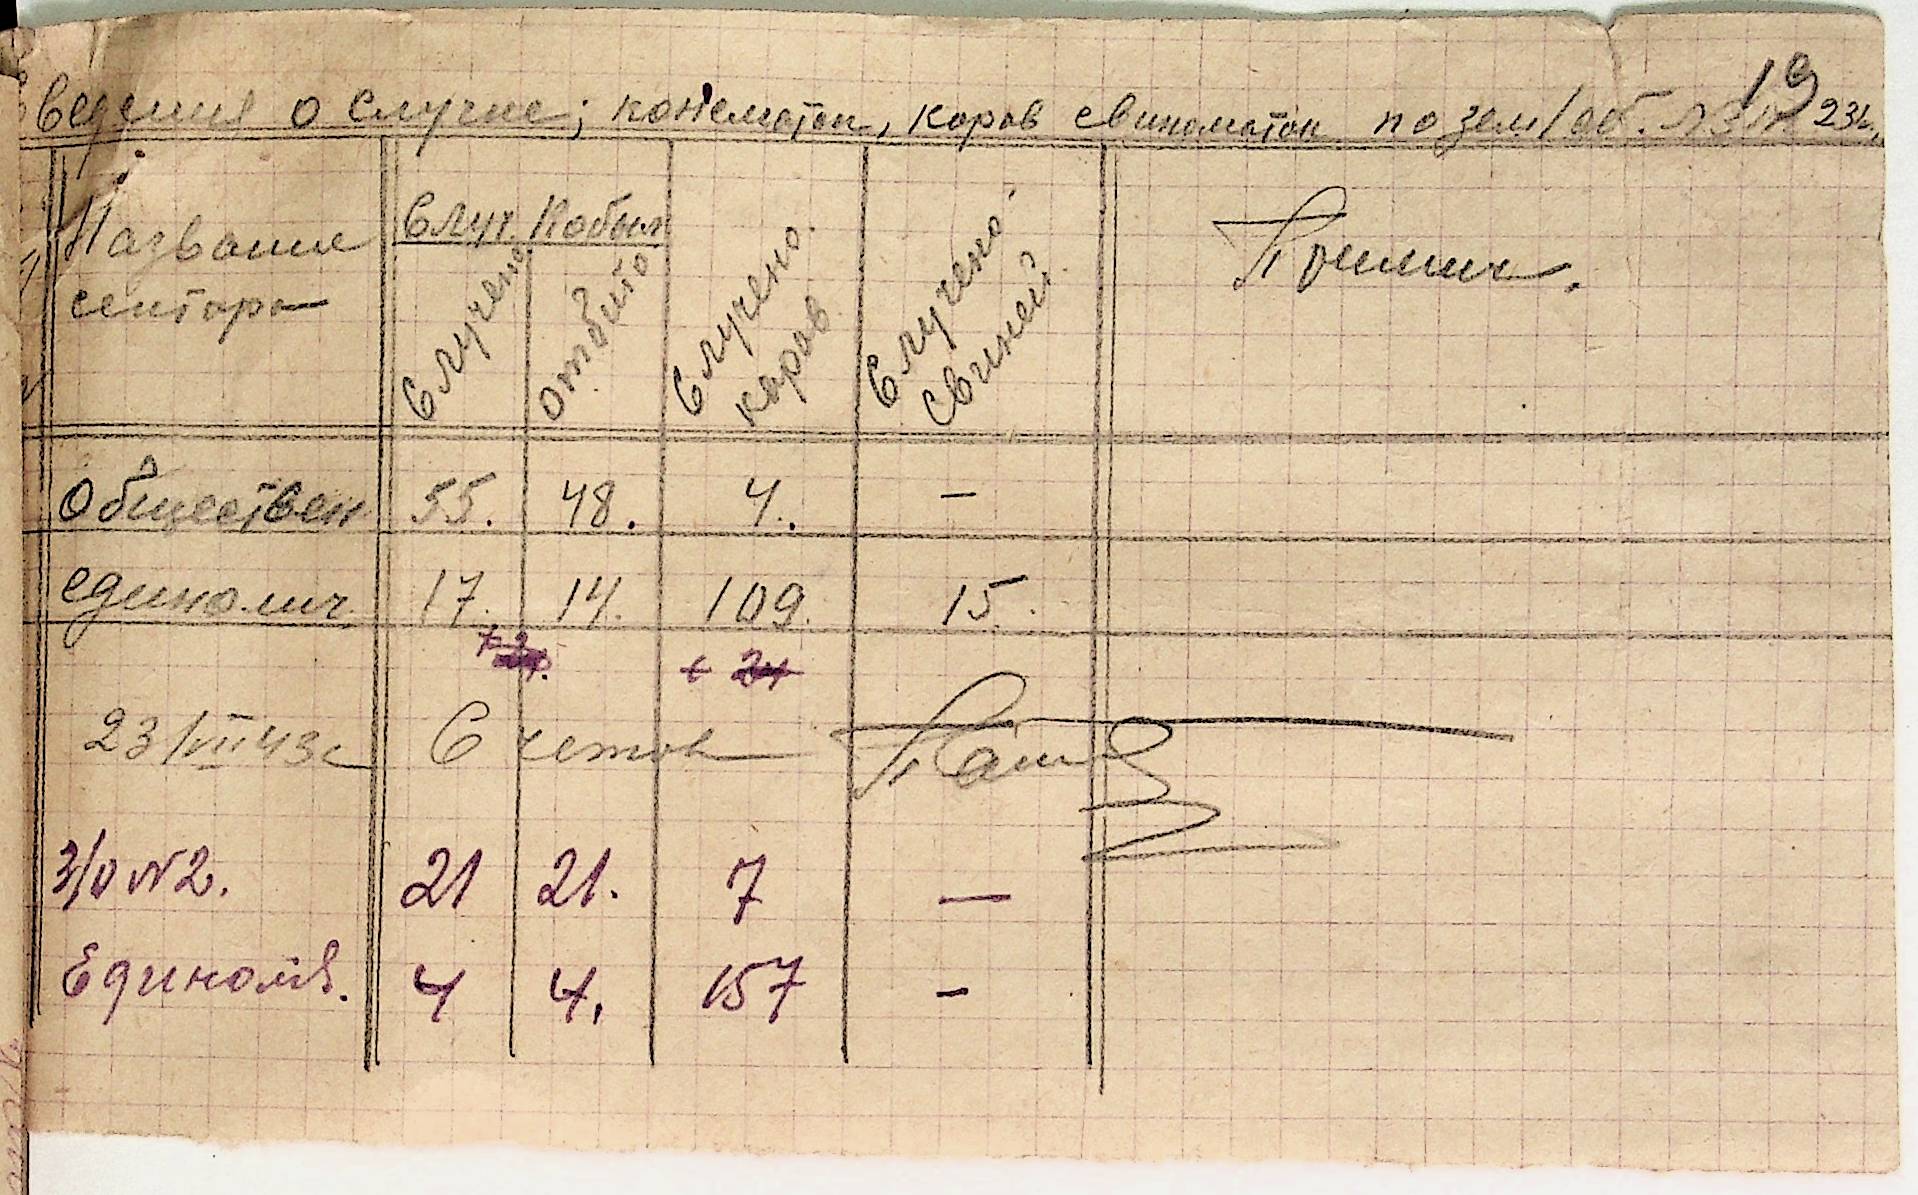 19
Сведения о случке; конематок, коров свиноматок по зем/об. 23
Название
сектора
Случ. Кобыл
Случено
отбито
Случено.
коров
Случено
свиней
Примеч.
Обществен 55. 48. 4. —
единолич. 17. 14. 109. 15.
23/VII 43г Счетов
З/О №2. 21 21. 7 —
Единол. 4 4. 157 -